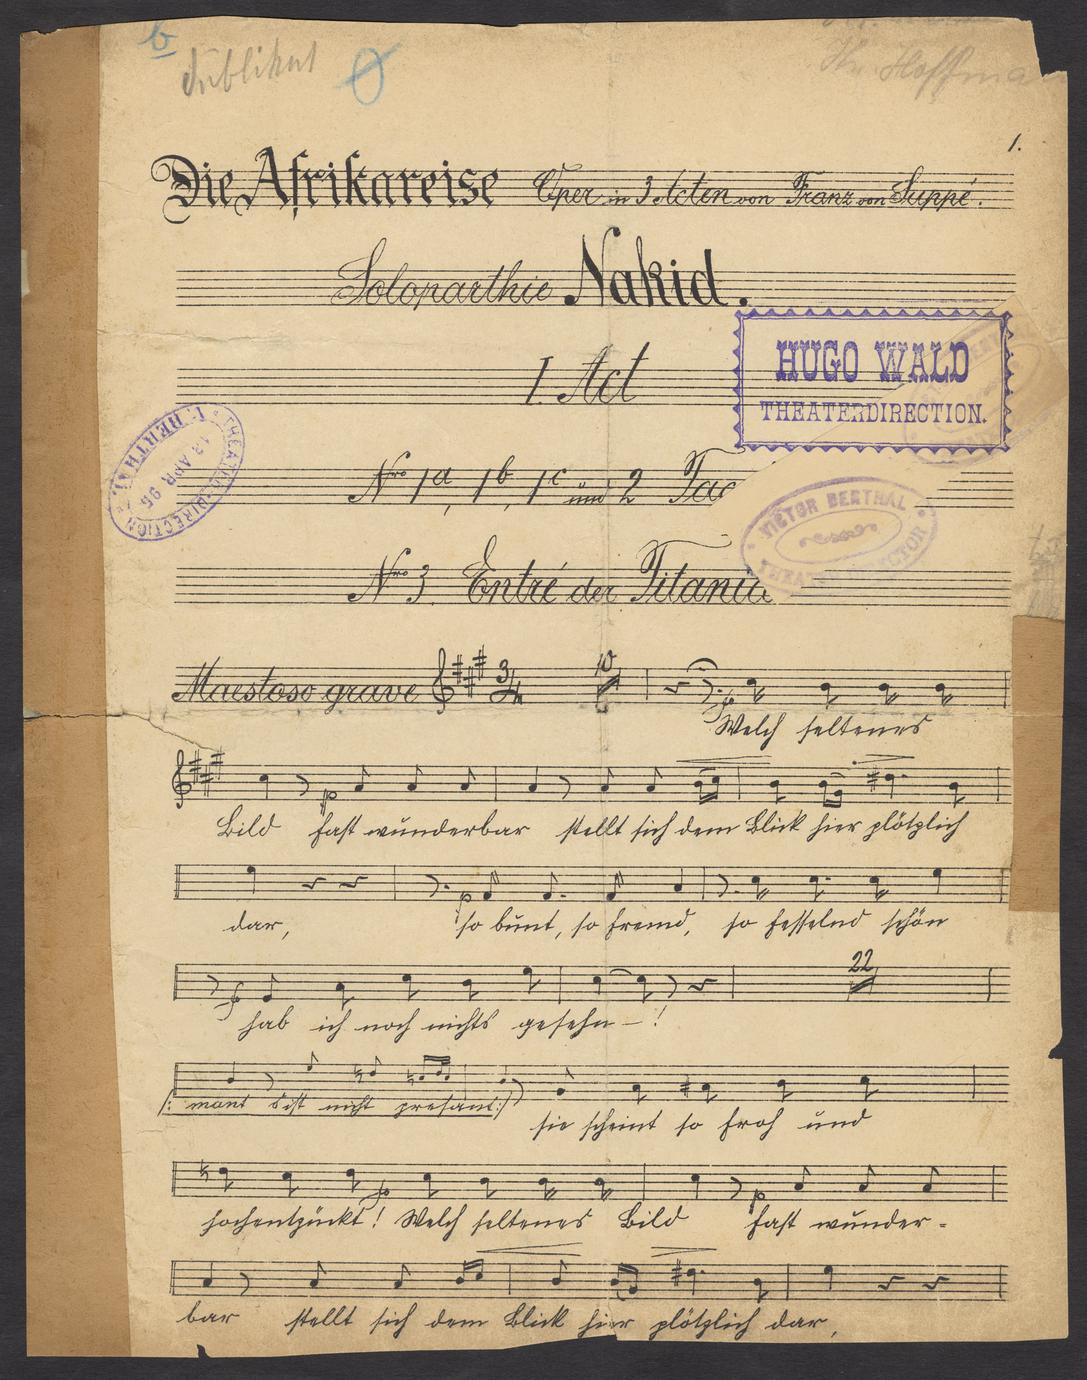 b
dublikat
Hr. Hoffma
1.
Die Afrikareise Oper in 3 Acten von Franz von Suppé.
Soloparthie Nakid.
HUGO WALD
THEATERDIRECTION.
I. Act
THEATER-DIRECTION
13 APR 95
Nro 1a, 1b, 1c und 2 Tac
VICTOR BERTHAL
Nro 3. Entré der Titania
Maestoso grave 3/4 10
Welch seltenes
Bild fast wunderbar stellt sich dem Blick hier plötzlich
dar, so bunt, so fremd, so fesselnd schön
22
hab ich noch nichts gesehn – !
/: nicht :/ sie scheint so froh und
hochentzückt! Welch seltenes Bild fast wunder-
bar stellt sich dem Blick hier plötzlich dar,